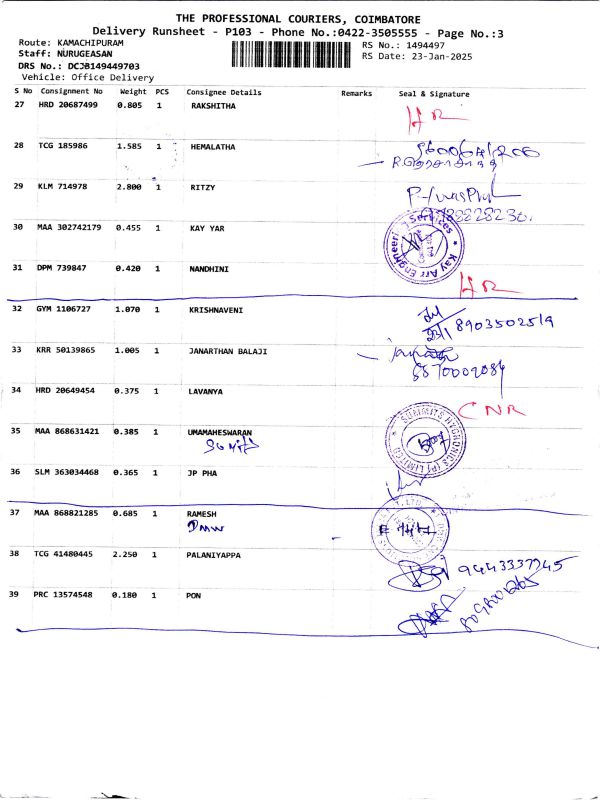 THE PROFESSIONAL COURIERS, COIMBATORE
Delivery Runsheet - P103 - Phone No.:0422-3505555 - Page No.:3
Route: KAMACHIPURAM RS No.: 1494497
Staff: NURUGEASAN RS Date: 23-Jan-2025
DRS No.: DCJB149449703
Vehicle: Office Delivery
S No Consignment No Weight PCS Consignee Details Remarks Seal & Signature
27 HRD 20687499 0.805 1 RAKSHITHA
28 TCG 185986 1.585 1 HEMALATHA
29 KLM 714978 2.800 1 RITZY
30 MAA 302742179 0.455 1 KAY YAR
Kay Arr Engineering Services
31 DPM 739847 0.420 1 NANDHINI
32 GYM 1106727 1.070 1 KRISHNAVENI
23/1 8903502519
33 KRR 50139865 1.005 1 JANARTHAN BALAJI
34 HRD 20649454 0.375 1 LAVANYA
CNR
35 MAA 868631421 0.385 1 UMAMAHESWARAN
SUMMITS HYGRONICS (P) LIMITED
36 SLM 363034468 0.365 1 JP PHA
37 MAA 868821285 0.685 1 RAMESH
38 TCG 41480445 2.250 1 PALANIYAPPA
9443337745
39 PRC 13574548 0.180 1 PON